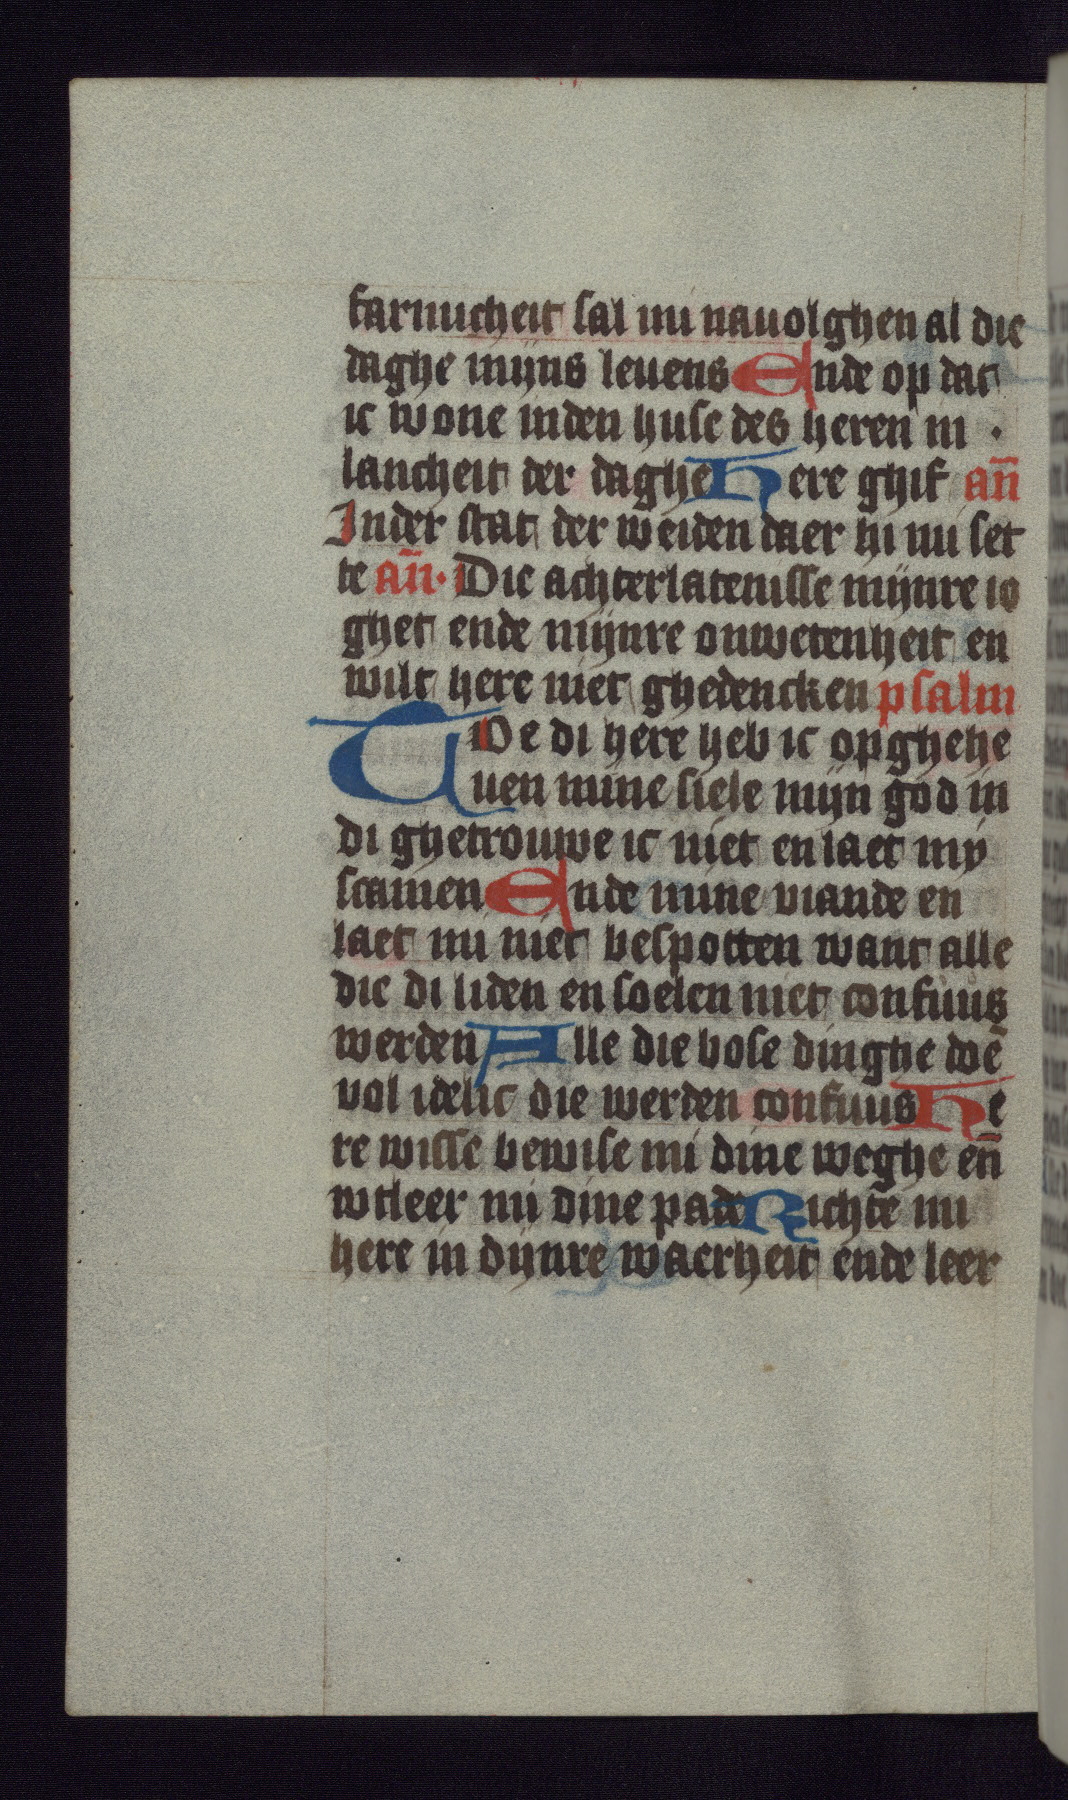 farmicheit sal mi nauolghen al die
daghe mijns leuens Ende op dat
ic wone inden huse des heren in .
lancheit der daghe Here ghif an̄
Inder stat der weiden daer hi mi set
te an̄. Die achterlatenisse mijnre io
ghet ende mijnre onwetenheit en
wilt here niet ghedencken psalm
Toe di here heb ic opghehe
uen mine siele mijn god in
di ghetrouwe ic niet en laet my
scamen Ende mine viande en
laet mi niet bespotten want alle
die di liden en soelen niet confuus
werden Alle die bose dinghe doē
vol idelic die werden confuus He
re wisse bewise mi dine weghe en̄
wtleer mi dine pade Richte mi
here in dijnre waerheit ende leer